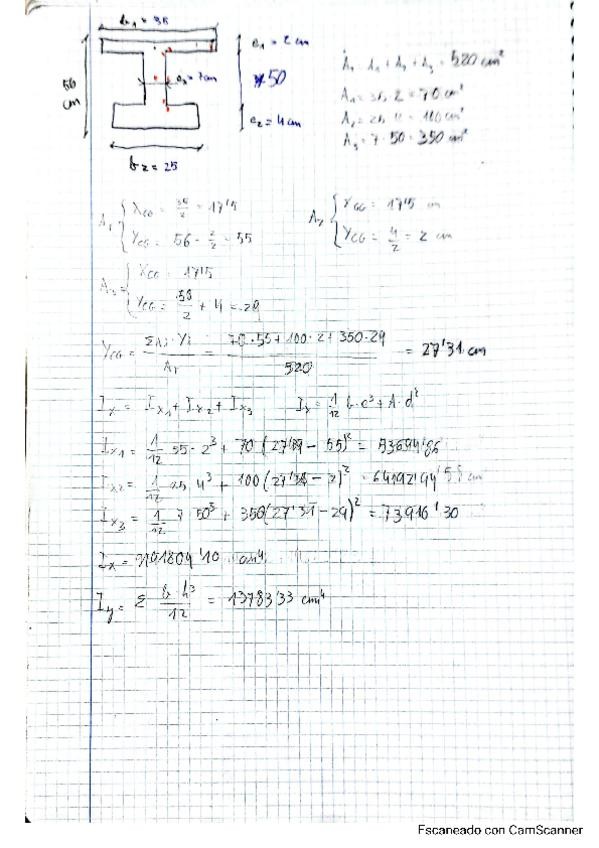 b₁ = 35
e₁ = 2 cm
56 cm
e₃ = 7cm
50
e₂ = 4 cm
b₂ = 25
A₁ + A₂ + A₃ = 520 cm²
A₁ = 35 · 2 = 70 cm²
A₃ = 7 · 50 = 350 cm²
A₁ { X_CG = 35/2 = 17'5
Y_CG = 56 - 2/2 = 55
A₂ { X_CG = 17'5 cm
Y_CG = 4/2 = 2 cm
A₃ { X_CG = 17'5
Y_CG = /2 + 4 = 29
Y_CG = ΣAi · Yi / A_T = 70·55 + 100·2 + 350·29 / 520 = 27'31 cm
I_x = I_x₁ + I_x₂ + I_x₃ I_x = 1/12 b·e³ + A·d²
I_x₁ = 1/12 · 2³ + 70 ( - 55)² =
I_x₂ = 1/12 25 4³ + 100( - 2)² =
I_x₃ = 1/12 7 50³ + 350(27'31 - 29)² = 73916'30
I_x = cm⁴
I_y = Σ b·h³/12 = 13783'33 cm⁴
Escaneado con CamScanner